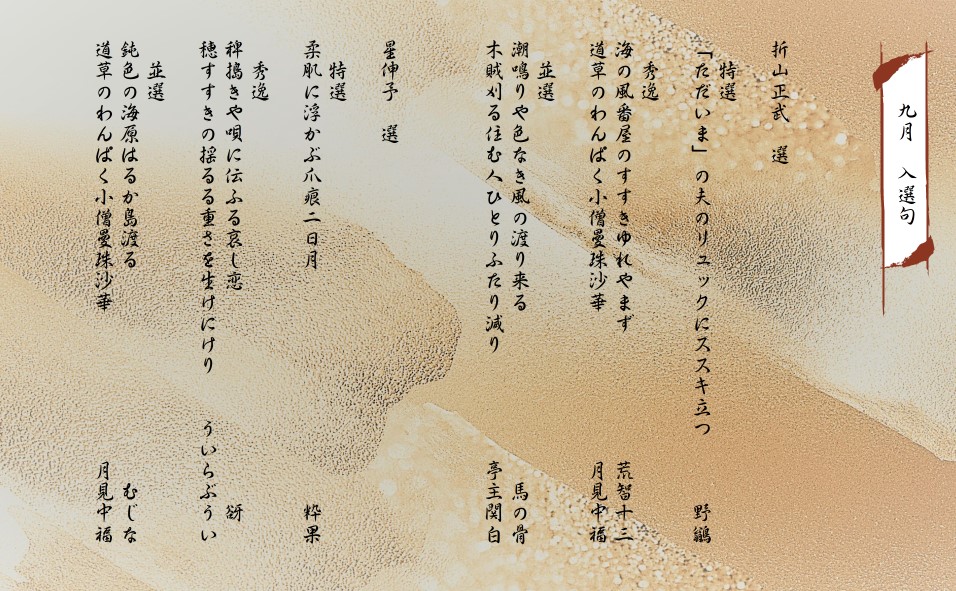 九月　入選句
折山正武　選
特選
「ただいま」の夫のリュックにススキ立つ　野鶲
秀逸
海の風番屋のすすきゆれやまず　荒智十三
道草のわんぱく小僧曼珠沙華　月見中福
並選
潮鳴りや色なき風の渡り来る　馬の骨
木賊刈る住む人ひとりふたり減り　亭主関白
星伸予　選
特選
柔肌に浮かぶ爪痕二日月　粋果
秀逸
稗搗きや唄に伝ふる哀し恋　谺
穂すすきの揺るる重さを生けにけり　ういらぶうい
並選
鈍色の海原はるか島渡る　むじな
道草のわんぱく小僧曼珠沙華　月見中福